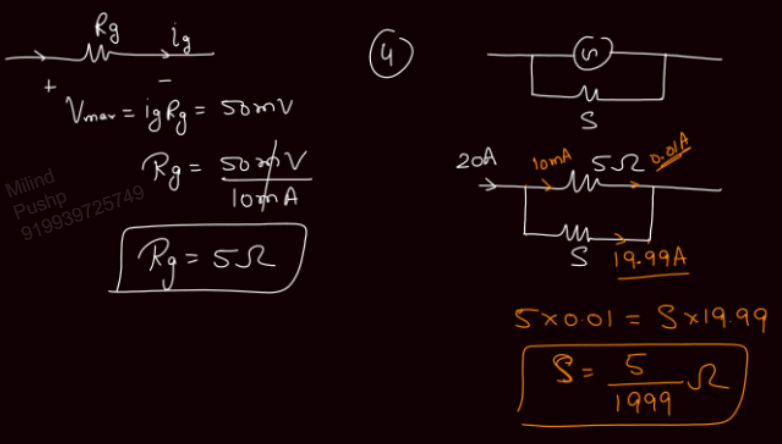 Rg ig
+ −
Vmax = igRg = 50mV
Rg = 50mV / 10mA
Rg = 5Ω
Milind
Pushp
919939725749
4
G
S
20A 10mA 5Ω 0.01A
S 19.99A
5×0.01 = S×19.99
S = 5 / 1999 Ω